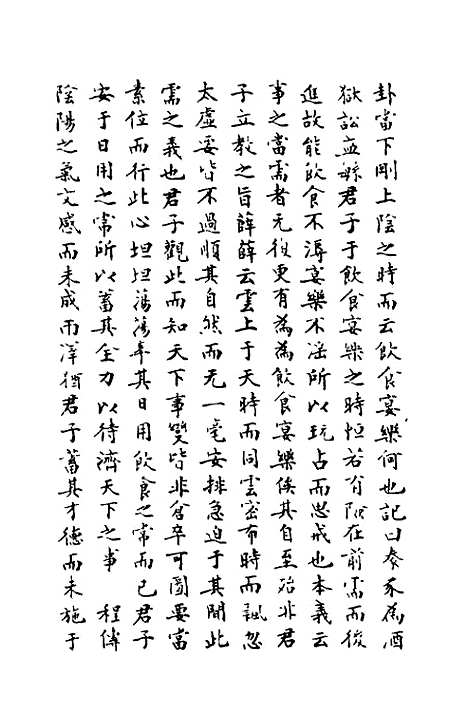 卦當下剛上陰之時而云飲食宴樂何也記曰豢豕為酒
獄訟益繇君子于飲食宴樂之時恒若有險在前需而後
進故能飲食不溽宴樂不淫所以玩占而思戒也本義云
事之當需者无復更有為為飲食宴樂俟其自至殆非君
子立教之旨薛薛云雲上于天時而同雲密布時而飄忽
太虛要皆不過順其自然而无一毫安排急迫于其間此
需之義也君子觀此而知天下事變皆非倉卒可圖要當
素位而行此心坦坦蕩蕩率其日用飲食之常而已君子
安于日用之常所以蓄其全力以待濟天下之事 程傳
陰陽之氣交感而未成雨澤猶君子蓄其才德而未施于